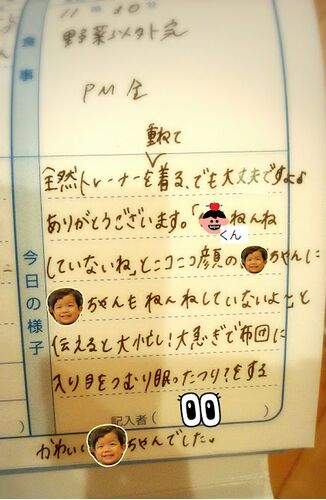 11 時 30 分
野菜以外完
食事
PM 全
重ねて
全然トレーナーを着る、でも大丈夫ですよ♪
ありがとうございます。「くんねんね
していないね」とニコニコ顔のちゃんに
ちゃんもねんねしていないよ」と
伝えると大忙し!大急ぎで布団に
入り目をつむり眠ったつり?をする
今日の様子
記入者( )
かわいいちゃんでした。